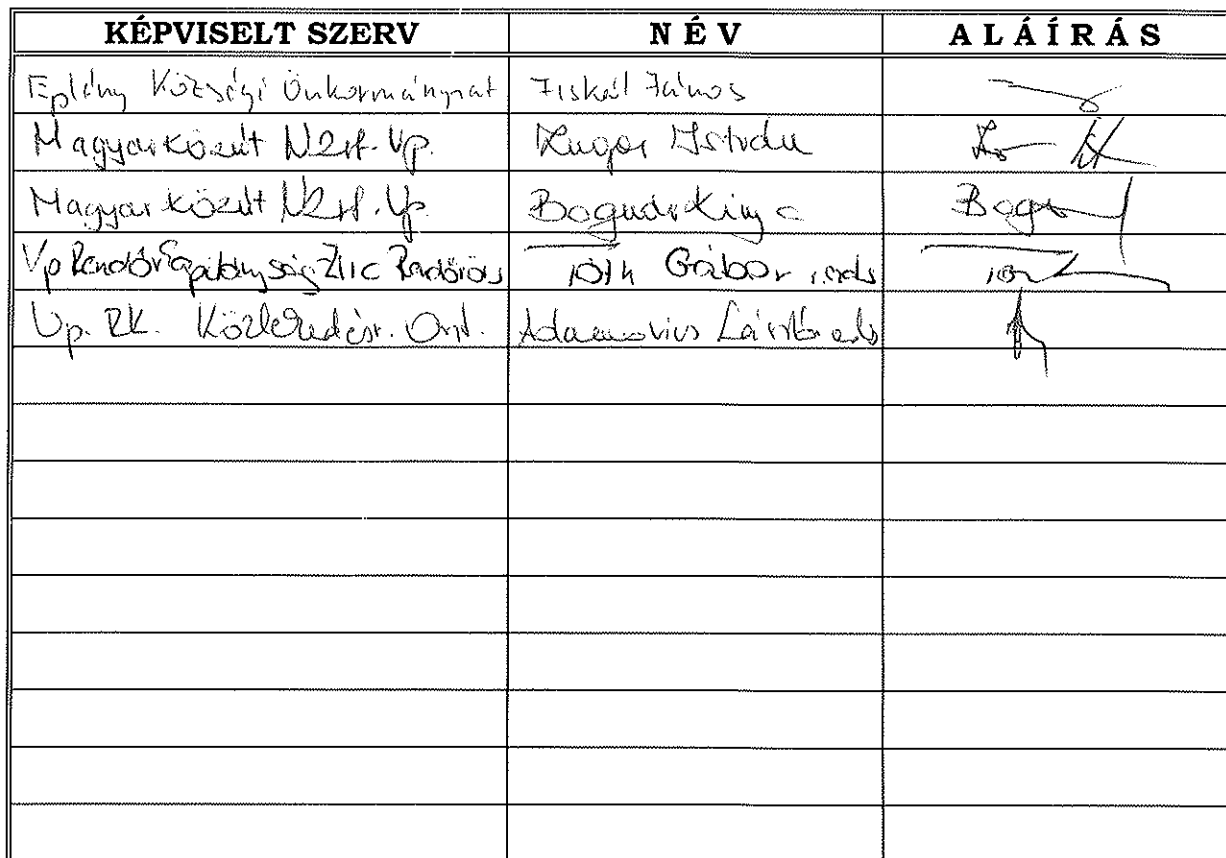 KÉPVISELT SZERV NÉV ALÁÍRÁS
Eplény Községi Önkormányzat Fiskál János
Magyar Közút NZrt. Vp. István
Magyar Közút NZrt. Vp. Bognár Kinga
Vp Rendőrkapitányság Zirc Rendőrőrs Tóth Gábor
Vp. RK. Közlekedésr. Oszt. Adamovics László